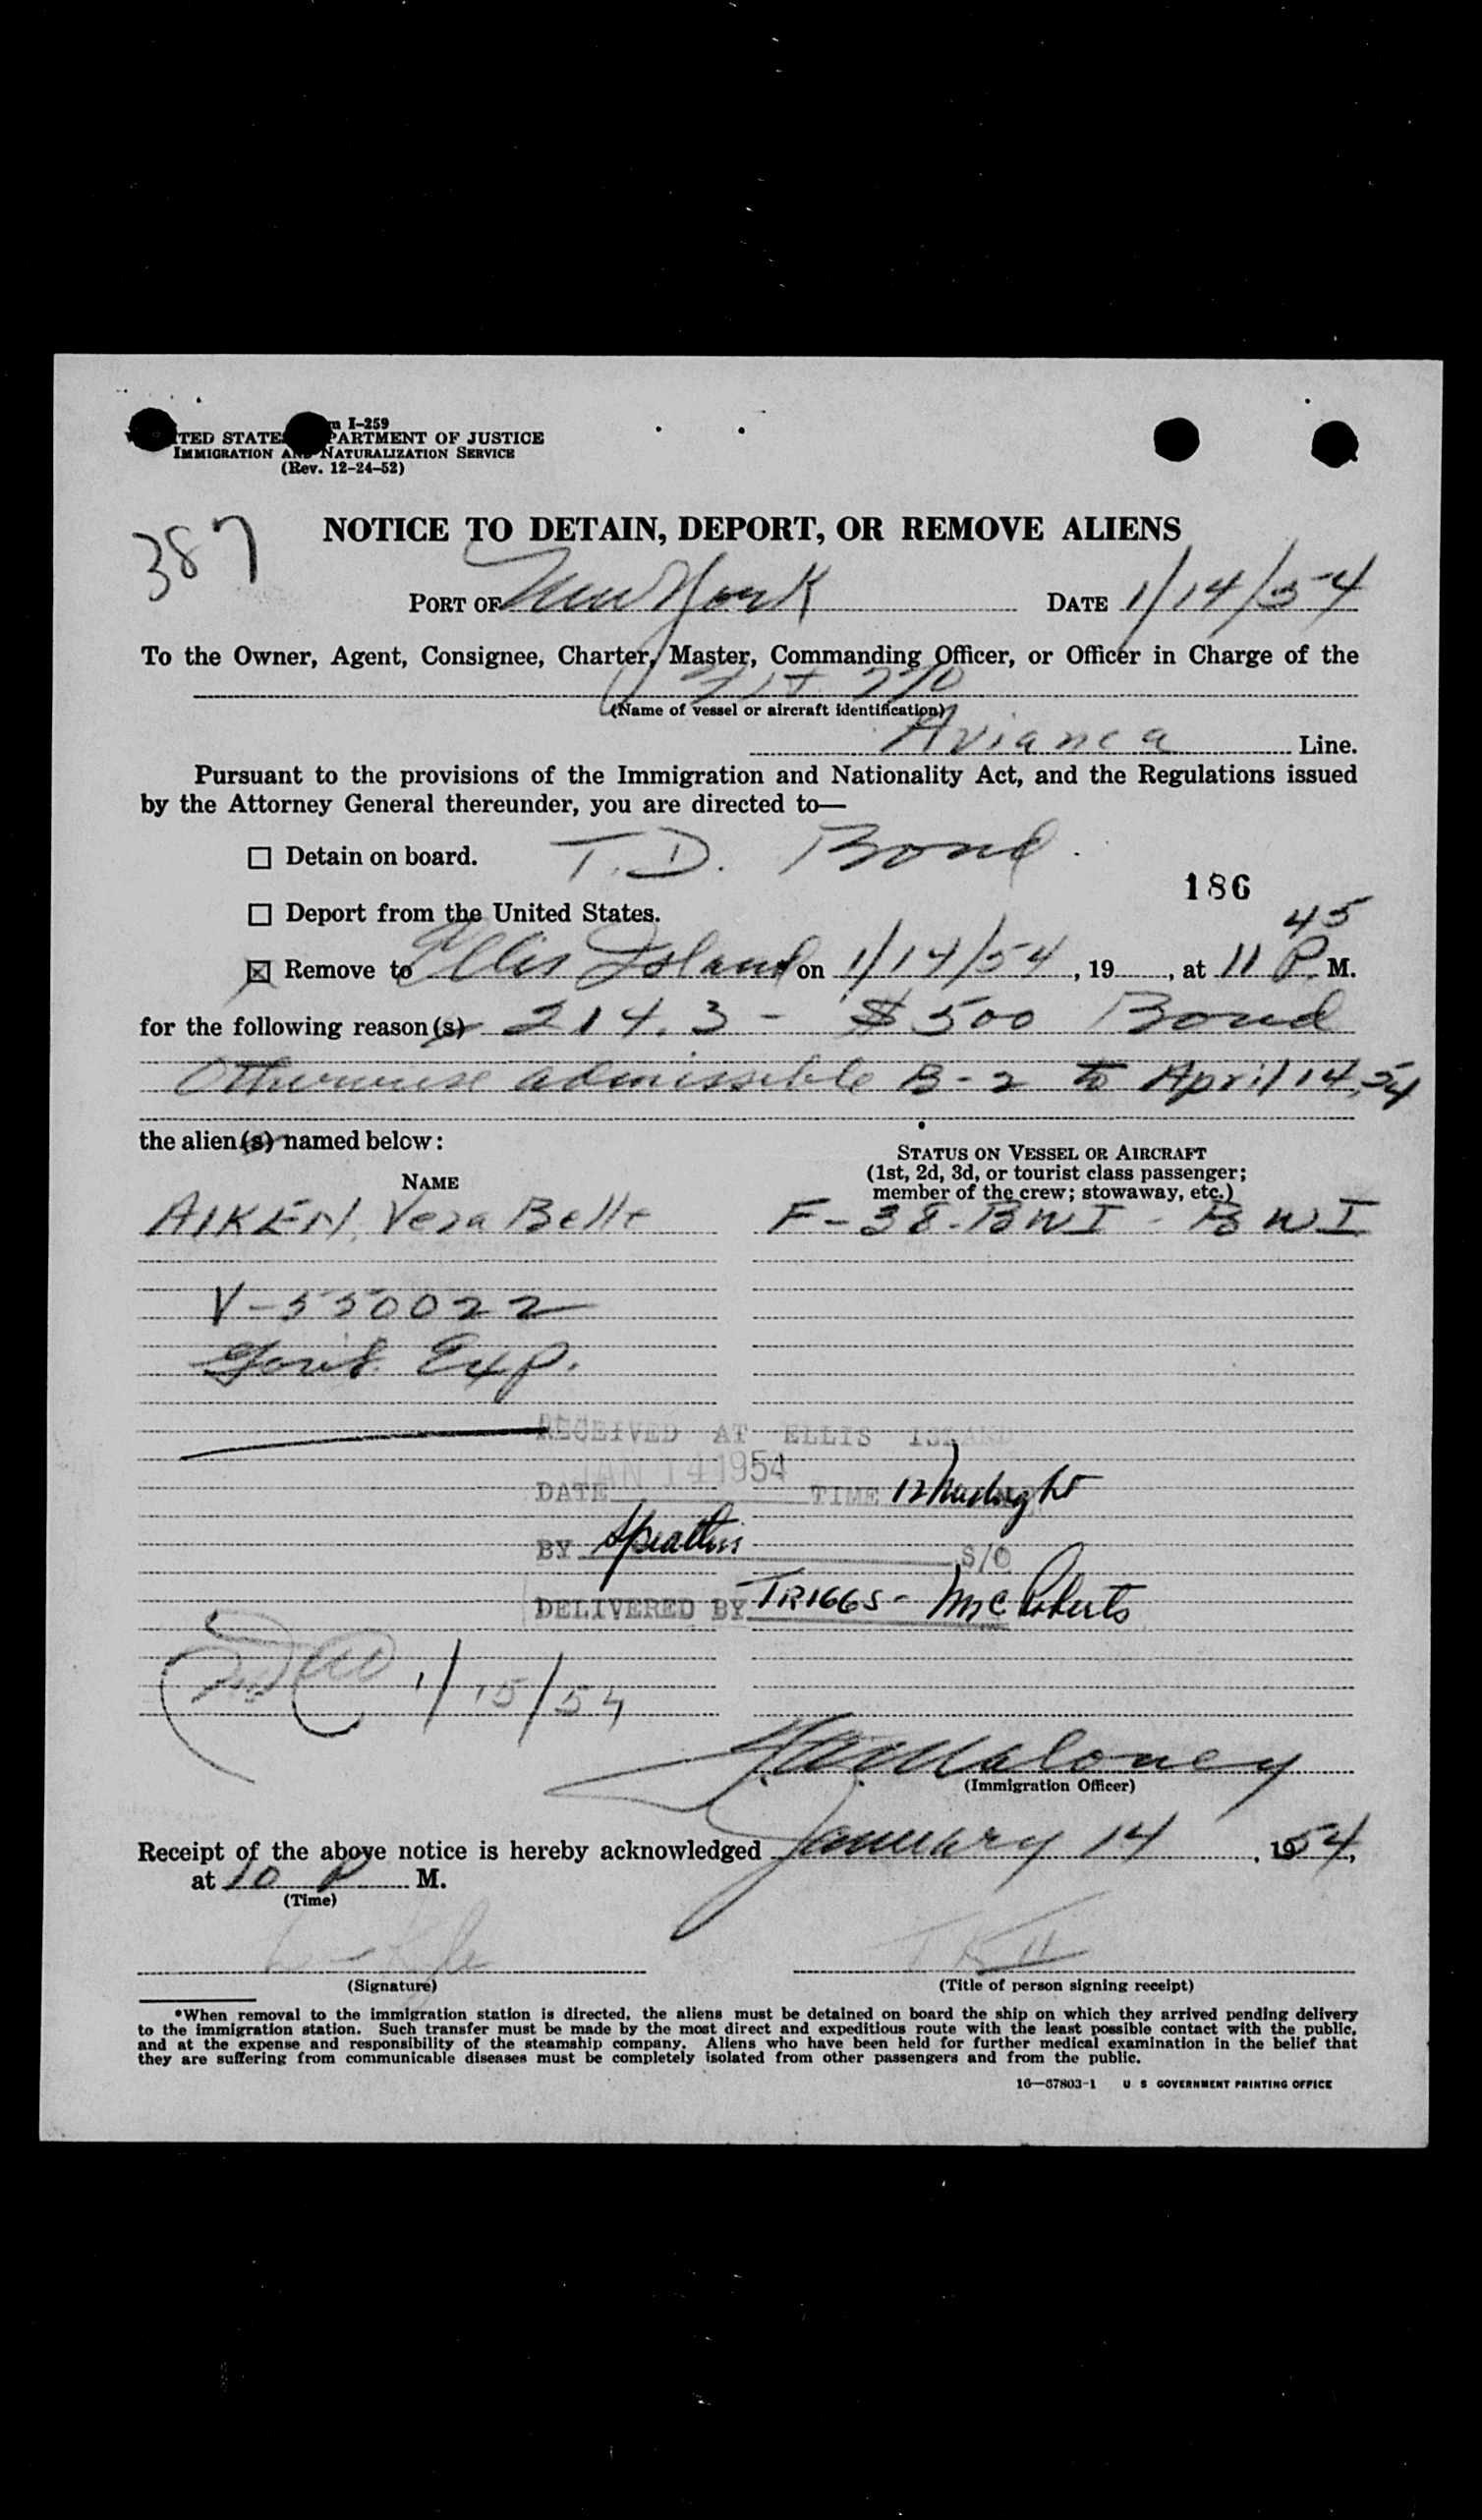 m I-259
TED STATES PARTMENT OF JUSTICE
IMMIGRATION AND NATURALIZATION SERVICE
(Rev. 12-24-52)
387
NOTICE TO DETAIN, DEPORT, OR REMOVE ALIENS
PORT OF New York DATE 1/14/54
To the Owner, Agent, Consignee, Charter, Master, Commanding Officer, or Officer in Charge of the
Flt 770
(Name of vessel or aircraft identification)
Avianca Line.
Pursuant to the provisions of the Immigration and Nationality Act, and the Regulations issued
by the Attorney General thereunder, you are directed to—
☐ Detain on board. T.D. Bond.
186
☐ Deport from the United States.
☒ Remove to Ellis Island on 1/14/54, 19, at 11 45 P. M.
for the following reason(s) 214.3 - $500 Bond
Otherwise admissible B-2 to April 14, 54
the alien(s) named below:
STATUS ON VESSEL OR AIRCRAFT
(1st, 2d, 3d, or tourist class passenger;
member of the crew; stowaway, etc.)
NAME
AIKEN, Vera Belle F-38-BWI - BWI
V-550022
Gov't. Exp.
RECEIVED AT ELLIS ISLAND
DATE JAN 14 1954 TIME 12 Midnight
BY S/O
DELIVERED BY TRIGGS - McRoberts
1/15/54
Maloney
(Immigration Officer)
Receipt of the above notice is hereby acknowledged January 14, 1954,
at 10 P M.
(Time)
(Signature)
(Title of person signing receipt)
*When removal to the immigration station is directed, the aliens must be detained on board the ship on which they arrived pending delivery
to the immigration station. Such transfer must be made by the most direct and expeditious route with the least possible contact with the public,
and at the expense and responsibility of the steamship company. Aliens who have been held for further medical examination in the belief that
they are suffering from communicable diseases must be completely isolated from other passengers and from the public.
16—67803-1 U S GOVERNMENT PRINTING OFFICE